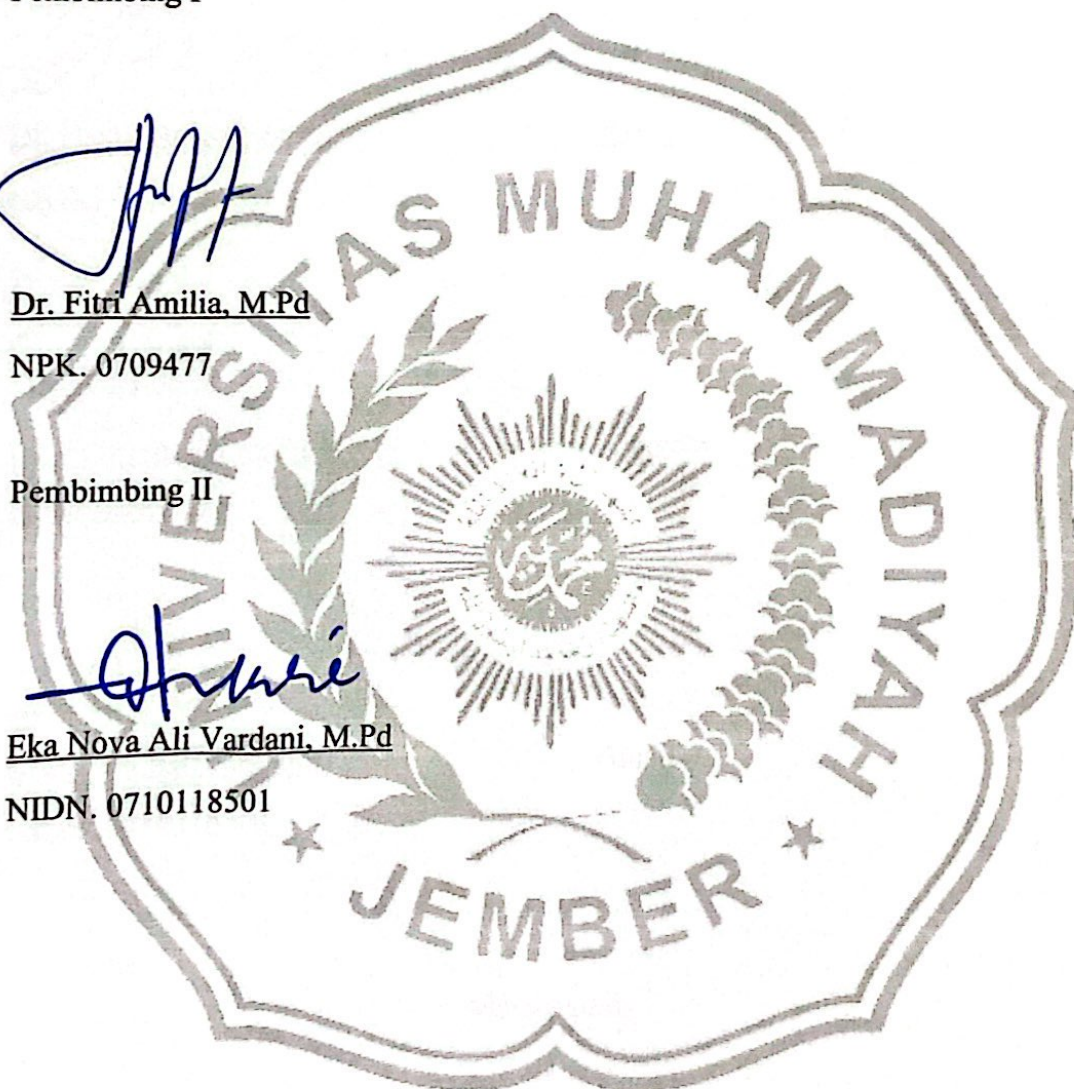 Pembimbing I
Dr. Fitri Amilia, M.Pd
NPK. 0709477
Pembimbing II
Eka Nova Ali Vardani, M.Pd
NIDN. 0710118501
UNIVERSITAS MUHAMMADIYAH
JEMBER